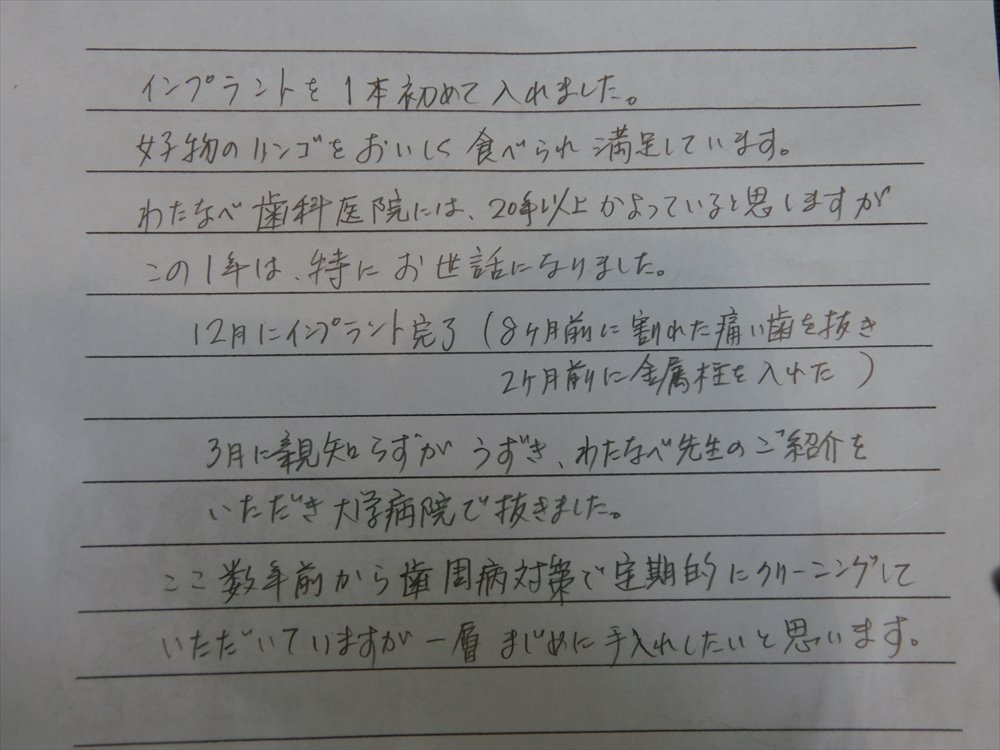 インプラントを1本初めて入れました。
好物のリンゴをおいしく食べられ満足しています。
わたなべ歯科医院には、20年以上かよっていると思いますが
この1年は、特にお世話になりました。
12月にインプラント完了(8ケ月前に割れた痛い歯を抜き
2ケ月前に金属柱を入れた)
3月に親知らずがうずき、わたなべ先生のご紹介を
いただき大学病院で抜きました。
ここ数年前から歯周病対策で定期的にクリーニングして
いただいていますが一層まじめに手入れしたいと思います。